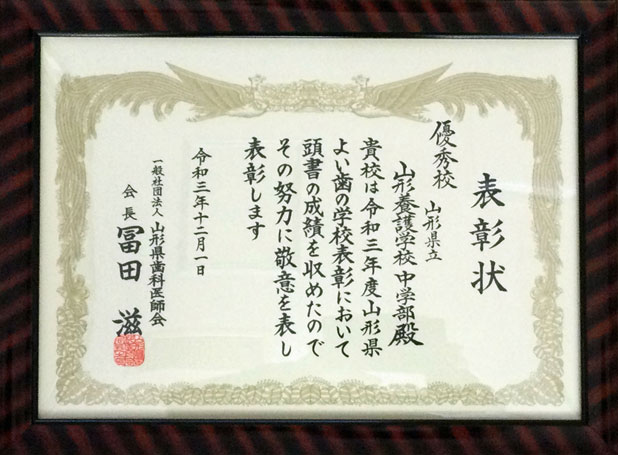 表彰状
優秀校 山形県立
山形養護学校 中学部殿
貴校は令和三年度山形県
よい歯の学校表彰において
頭書の成績を収めたので
その努力に敬意を表し
表彰します
令和三年十二月一日
一般社団法人 山形県歯科医師会
会長 冨田 滋